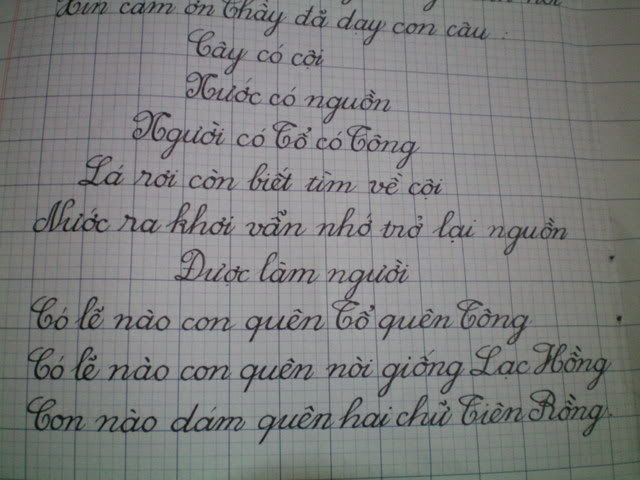 Xin cảm ơn Thầy đã dạy con câu :
Cây có cội
Nước có nguồn
Người có Tổ có Tông
Lá rơi còn biết tìm về cội
Nước ra khơi vẫn nhớ trở lại nguồn
Được làm người
Có lẽ nào con quên Tổ quên Tông
Có lẽ nào con quên nòi giống Lạc Hồng
Con nào dám quên hai chữ Tiên Rồng.